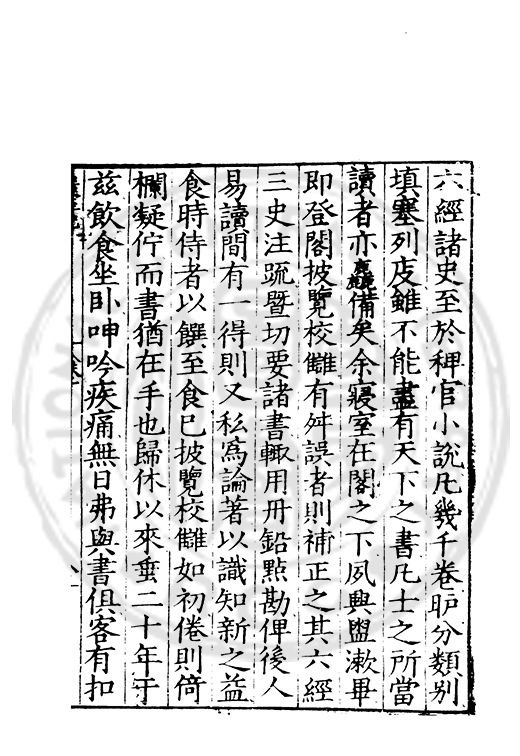 六經諸史至於稗官小說凡幾千卷昈分類別
填塞列庋雖不能盡有天下之書凡士之所當
讀者亦麤備矣余寢室在閣之下夙興盥漱畢
即登閣披覽校讎有舛誤者則補正之其六經
三史注疏暨切要諸書輙用丹鉛㸃勘俾後人
易讀間有一得則又私為論著以識知新之益
食時侍者以饌至食已披覽校讎如初倦則倚
欄凝佇而書猶在手也歸休以來垂二十年于
茲飲食坐卧呻吟疾痛無日弗與書俱客有扣